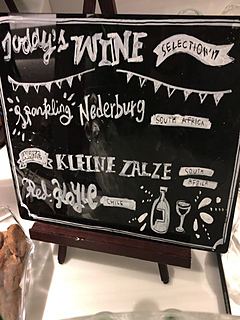 Joddy's WINE SELECTION '17
Sparkling Nederburg SOUTH AFRICA
WHITE KLEINE ZALZE SOUTH AFRICA
Red CHILE